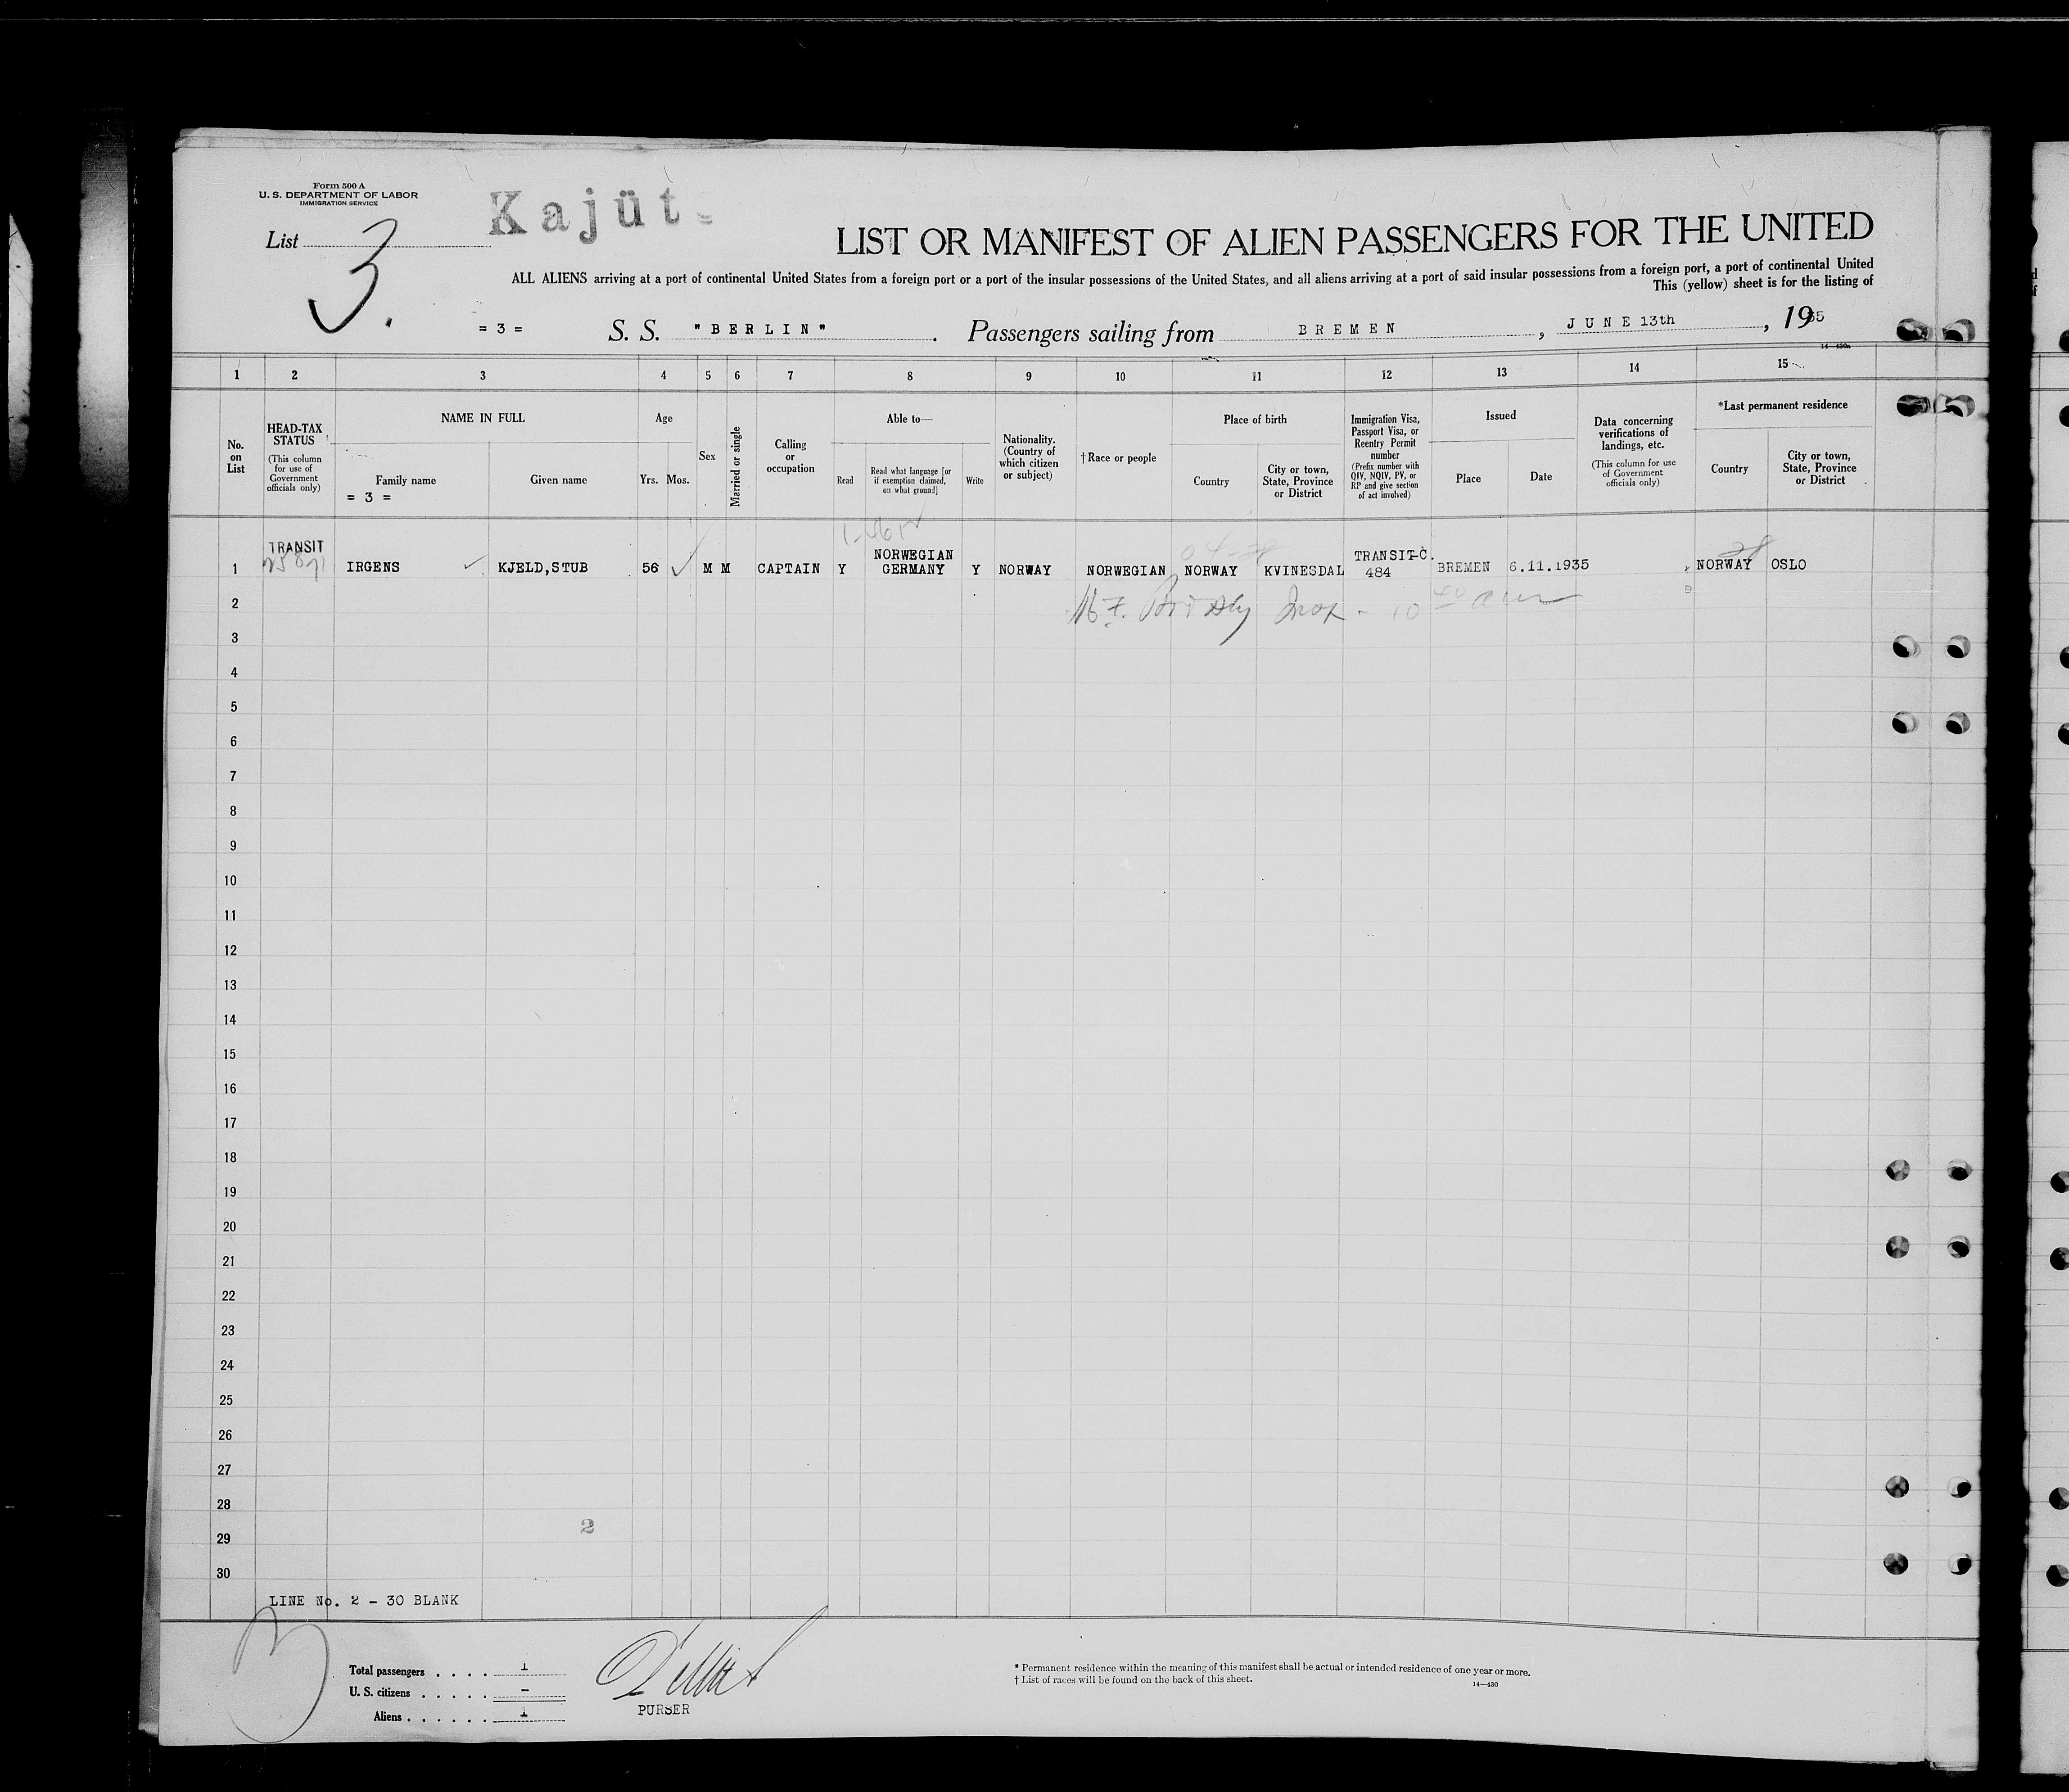 Form 500 A
U. S. DEPARTMENT OF LABOR
IMMIGRATION SERVICE
Kajüt
List 3.
LIST OR MANIFEST OF ALIEN PASSENGERS FOR THE UNITED
ALL ALIENS arriving at a port of continental United States from a foreign port or a port of the insular possessions of the United States, and all aliens arriving at a port of said insular possessions from a foreign port, a port of continental United
This (yellow) sheet is for the listing of
= 3 = S. S. "BERLIN". Passengers sailing from BREMEN, JUNE 13th, 1935
14—430
1 2 3 4 5 6 7 8 9 10 11 12 13 14 15
No. on List
HEAD-TAX STATUS
(This column for use of Government officials only)
NAME IN FULL
Family name
= 3 =
Given name
Age
Yrs. Mos.
Sex
Married or single
Calling or occupation
Able to—
Read
Read what language [or if exemption claimed, on what ground]
Write
Nationality. (Country of which citizen or subject)
† Race or people
Place of birth
Country
City or town, State, Province or District
Immigration Visa, Passport Visa, or Reentry Permit number
(Prefix number with QIV, NQIV, PV, or RP and give section of act involved)
Issued
Place
Date
Data concerning verifications of landings, etc.
(This column for use of Government officials only)
*Last permanent residence
Country
City or town, State, Province or District
1 TRANSIT IRGENS KJELD,STUB 56 M M CAPTAIN Y NORWEGIAN GERMANY Y NORWAY NORWEGIAN NORWAY KVINESDAL TRANSIT-C. 484 BREMEN 6.11.1935 NORWAY OSLO
2
3
4
5
6
7
8
9
10
11
12
13
14
15
16
17
18
19
20
21
22
23
24
25
26
27
28
2
29
30
LINE No. 2 - 30 BLANK
3
Total passengers . . . . 1
U. S. citizens . . . . . -
Aliens . . . . . . 1
PURSER
* Permanent residence within the meaning of this manifest shall be actual or intended residence of one year or more.
† List of races will be found on the back of this sheet.
14—430